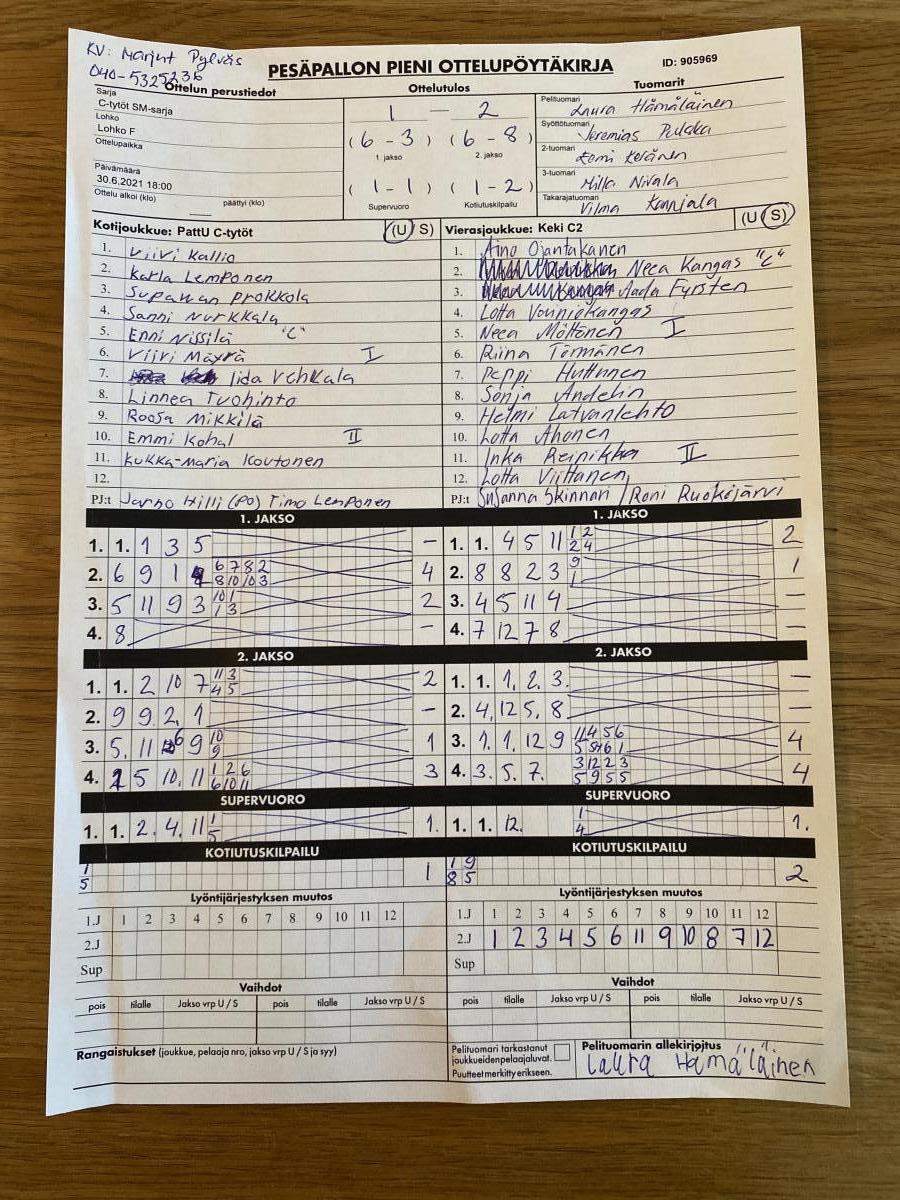 KV: Marjut Pylväs
040-5325236
PESÄPALLON PIENI OTTELUPÖYTÄKIRJA ID: 905969
Ottelun perustiedot Ottelutulos Tuomarit
Sarja
C-tytöt SM-sarja
Lohko
Lohko F
Ottelupaikka
Päivämäärä
30.6.2021 18:00
Ottelu alkoi (klo) päättyi (klo)
1 — 2
(6 - 3) (6 - 8)
1. jakso 2. jakso
(1 - 1) (1 - 2)
Supervuoro Kotiutuskilpailu
Pelituomari Laura Hämäläinen
Syöttötuomari Jeremias
2-tuomari Eemi Keränen
3-tuomari Milla Nivala
Takarajatuomari Vilma
Kotijoukkue: PattU C-tytöt (U S)
1. Viivi Kallio
2. Karla Lemponen
3. Supawan Prokkola
4. Sanni Nurkkala
5. Enni Nissilä "C"
6. Viivi Mäyrä I
7. Iida Vehkala
8. Linnea Tuohinto
9. Roosa Mikkilä
10. Emmi Kohal II
11. Kukka-Maria Koutonen
12.
PJ:t Jarno Hilli (PO) Timo Lemponen
Vierasjoukkue: Keki C2 (U S)
1. Aino Ojantakanen
2. Neea Kangas "C"
3. Aada Fyrsten
4. Lotta Vainiokangas
5. Neea Möttönen I
6. Riina Törmänen
7. Peppi Huttunen
8. Sonja Andelin
9. Helmi Latvanlehto
10. Lotta Ahonen
11. Inka Reinikka II
12. Lotta Viittanen
PJ:t Susanna Skinnari / Roni Ruokojärvi
1. JAKSO
1. 1. 1 3 5 —
2. 6 9 1 6 7 8 2 4
8 10 10 3
3. 5 11 9 3 10 1 2
1 3
4. 8 —
1. JAKSO
1. 1. 4 5 11 1 2 2
2 4
2. 8 8 2 3 9 1
1
3. 4 5 11 4 —
4. 7 12 7 8 —
2. JAKSO
1. 1. 2 10 7 11 3 2
4 5
2. 9 9 2. 1 —
3. 5. 11 6 9 10 1
9
4. 5 10. 11 1 2 6 3
6 10 11
2. JAKSO
1. 1. 1. 2. 3. —
2. 4. 12 5. 8 —
3. 1. 1. 12 9 11 4 5 6 4
4. 3. 5. 7. 3 12 2 3 4
5 9 5 5
SUPERVUORO
1. 1. 2. 4. 11 1 1.
5
SUPERVUORO
1. 1. 12. 1 1.
4
KOTIUTUSKILPAILU
1 1
5
KOTIUTUSKILPAILU
1 9 2
8 5
Lyöntijärjestyksen muutos
1.J 1 2 3 4 5 6 7 8 9 10 11 12
2.J
Sup
Lyöntijärjestyksen muutos
1.J 1 2 3 4 5 6 7 8 9 10 11 12
2.J 1 2 3 4 5 6 11 9 10 8 7 12
Sup
Vaihdot
pois tilalle Jakso vrp U / S pois tilalle Jakso vrp U / S
Vaihdot
pois tilalle Jakso vrp U / S pois tilalle Jakso vrp U / S
Rangaistukset (joukkue, pelaaja nro, jakso vrp U / S ja syy)
Pelituomari tarkastanut
joukkueidenpelaajaluvat.
Puutteet merkitty erikseen.
Pelituomarin allekirjoitus
Laura Hämäläinen